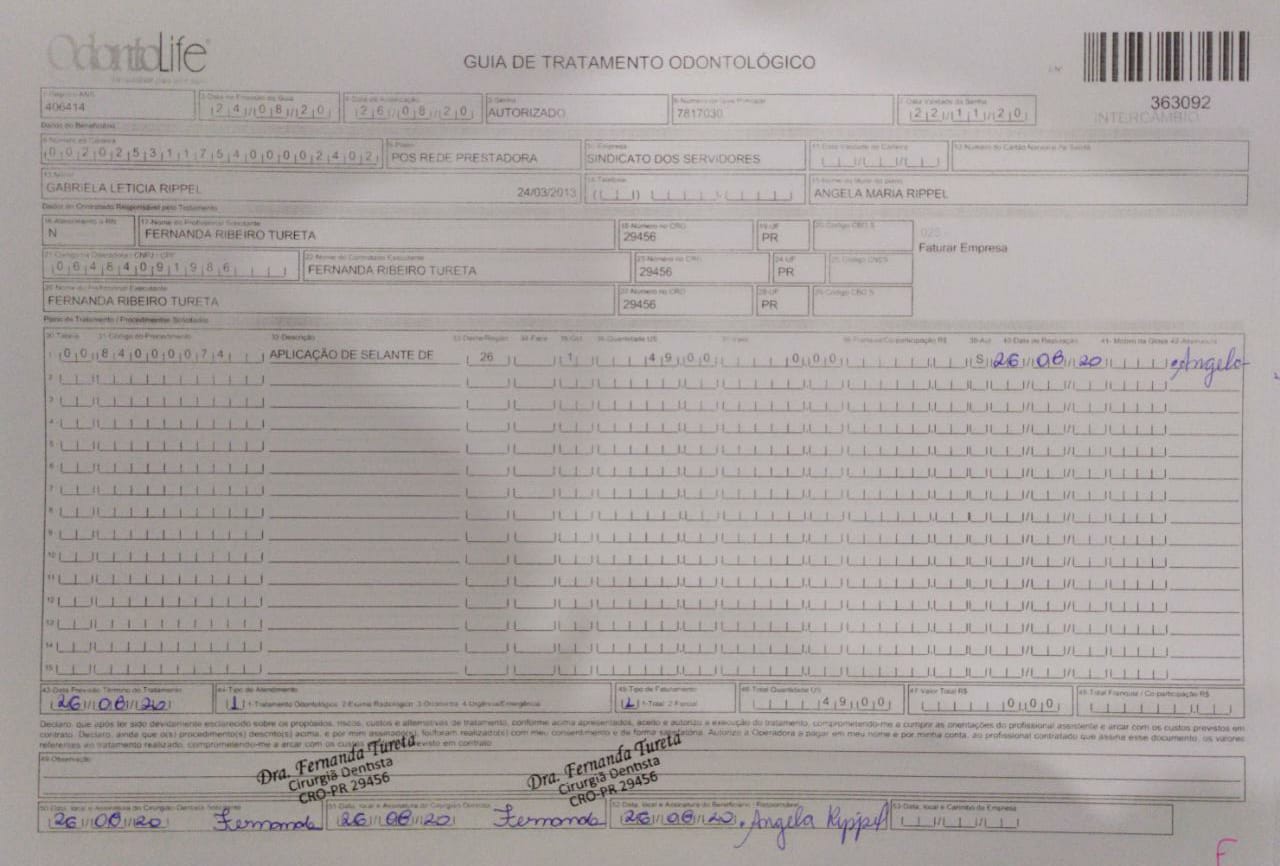 OdontoLife
GUIA DE TRATAMENTO ODONTOLÓGICO
Nº
363092
INTERCÂMBIO
1-Registro ANS
406414
3-Data de Emissão da Guia
24/08/20
4-Data de Autorização
26/08/20
5-Senha
AUTORIZADO
6-Número da Guia Principal
7817030
7-Data Validade da Senha
22/11/20
Dados do Beneficiário
8-Número da Carteira
00202531175400002402
9-Plano
POS REDE PRESTADORA
10-Empresa
SINDICATO DOS SERVIDORES
11-Data Validade da Carteira
12-Número do Cartão Nacional de Saúde
13-Nome
GABRIELA LETICIA RIPPEL 24/03/2013
14-Telefone
15-Nome do titular do plano
ANGELA MARIA RIPPEL
Dados do Contratado Responsável pelo Tratamento
16-Atendimento a RN
N
17-Nome do Profissional Solicitante
FERNANDA RIBEIRO TURETA
18-Número no CRO
29456
19-UF
PR
20-Código CBO S
025
Faturar Empresa
21-Código na Operadora / CNPJ / CPF
06484091986
22-Nome do Contratado Executante
FERNANDA RIBEIRO TURETA
23-Número no CRO
29456
24-UF
PR
25-Código CNES
26-Nome do Profissional Executante
FERNANDA RIBEIRO TURETA
27-Número no CRO
29456
28-UF
PR
29-Código CBO S
Plano de Tratamento / Procedimentos Solicitados
30-Tabela 31-Código do Procedimento 32-Descrição 33-Dente/Região 34-Face 35-Qtd 36-Quantidade US 37-Valor 38-Franquia/Co-participação R$ 39-Aut 40-Data de Realização 41-Motivo da Glosa 42-Assinatura
1 00 84000074 APLICAÇÃO DE SELANTE DE 26 1 49 00 0 00 S 26/08/20 Angela
2
3
4
5
6
7
8
9
10
11
12
13
14
15
43-Data Previsão Término do Tratamento
26/08/20
44-Tipo de Atendimento
1 1-Tratamento Odontológico 2-Exame Radiológico 3-Ortodontia 4-Urgência/Emergência
45-Tipo de Faturamento
1 1-Total 2-Parcial
46-Total Quantidade US
49 00
47-Valor Total R$
0 00
48-Total Franquia / Co-participação R$
Declaro, que após ter sido devidamente esclarecido sobre os propósitos, riscos, custos e alternativas de tratamento, conforme acima apresentados, aceito e autorizo a execução do tratamento, comprometendo-me a cumprir as orientações do profissional assistente e arcar com os custos previstos em
contrato. Declaro, ainda que o(s) procedimento(s) descrito(s) acima, e por mim assinado(s), foi/foram realizado(s) com meu consentimento e de forma satisfatória. Autorizo a Operadora a pagar em meu nome e por minha conta, ao profissional contratado que assina esse documento, os valores
referentes ao tratamento realizado, comprometendo-me a arcar com os custos previsto em contrato
49-Observação
Dra. Fernanda Tureta
Cirurgiã Dentista
CRO-PR 29456
Dra. Fernanda Tureta
Cirurgiã Dentista
CRO-PR 29456
50-Data, local e Assinatura do Cirurgião Dentista Solicitante
26/08/20 Fernanda
51-Data, local e Assinatura do Cirurgião Dentista
26/08/20 Fernanda
52-Data, local e Assinatura do Beneficiário / Responsável
26/08/20. Angela Rippel
53-Data, local e Carimbo da Empresa
F